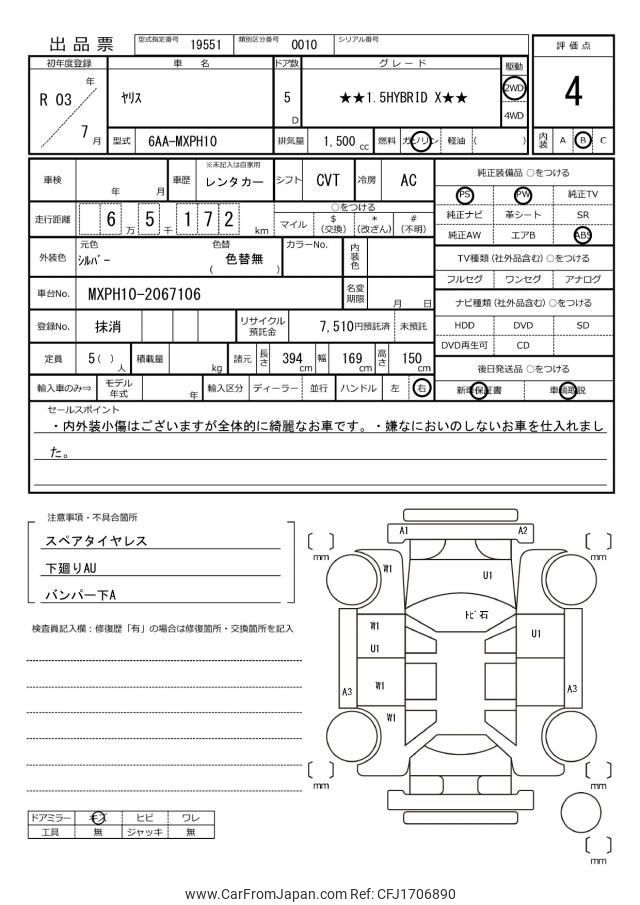 出品票 型式指定番号 19551 類別区分番号 0010 シリアル番号
評価点
4
初年度登録 車名 ドア数 グレード 駆動
R 03 年 7 月 ヤリス 5 D ★★1.5HYBRID X★★ 2WD 4WD
型式 6AA-MXPH10 排気量 1,500 cc 燃料 ガソリン 軽油 ( )
内装 A B C
車検 年 月 車歴 ※未記入は自家用 レンタカー シフト CVT 冷房 AC
走行距離 6 万 5 千 1 7 2 km
○をつける
マイル $ (交換) * (改ざん) # (不明)
外装色 元色 シルバー 色替 ( 色替無 ) カラーNo. 内装色
車台No. MXPH10-2067106 名変期限 月 日
登録No. 抹消 リサイクル預託金 7,510円預託済 未預託
定員 5( ) 人 積載量 kg 諸元 長さ 394 cm 幅 169 cm 高さ 150 cm
輸入車のみ⇒ モデル年式 年 輸入区分 ディーラー 並行 ハンドル 左 右
純正装備品 ○をつける
PS PW 純正TV
純正ナビ 革シート SR
純正AW エアB ABS
TV種類 (社外品含む) ○をつける
フルセグ ワンセグ アナログ
ナビ種類 (社外品含む) ○をつける
HDD DVD SD
DVD再生可 CD
後日発送品 ○をつける
新車保証書 車輌取説
セールスポイント
・内外装小傷はございますが全体的に綺麗なお車です。・嫌なにおいのしないお車を仕入れまし
た。
注意事項・不具合箇所
スペアタイヤレス
下廻りAU
バンパー下A
検査員記入欄:修復歴「有」の場合は修復箇所・交換箇所を記入
A1 A2
mm mm
W1 U1
トビ石
W1 U1
U1
A3 W1 A3
W1
mm mm
mm
ドアミラー キズ ヒビ ワレ
工具 無 ジャッキ 無
www.CarFromJapan.com Ref: CFJ1706890